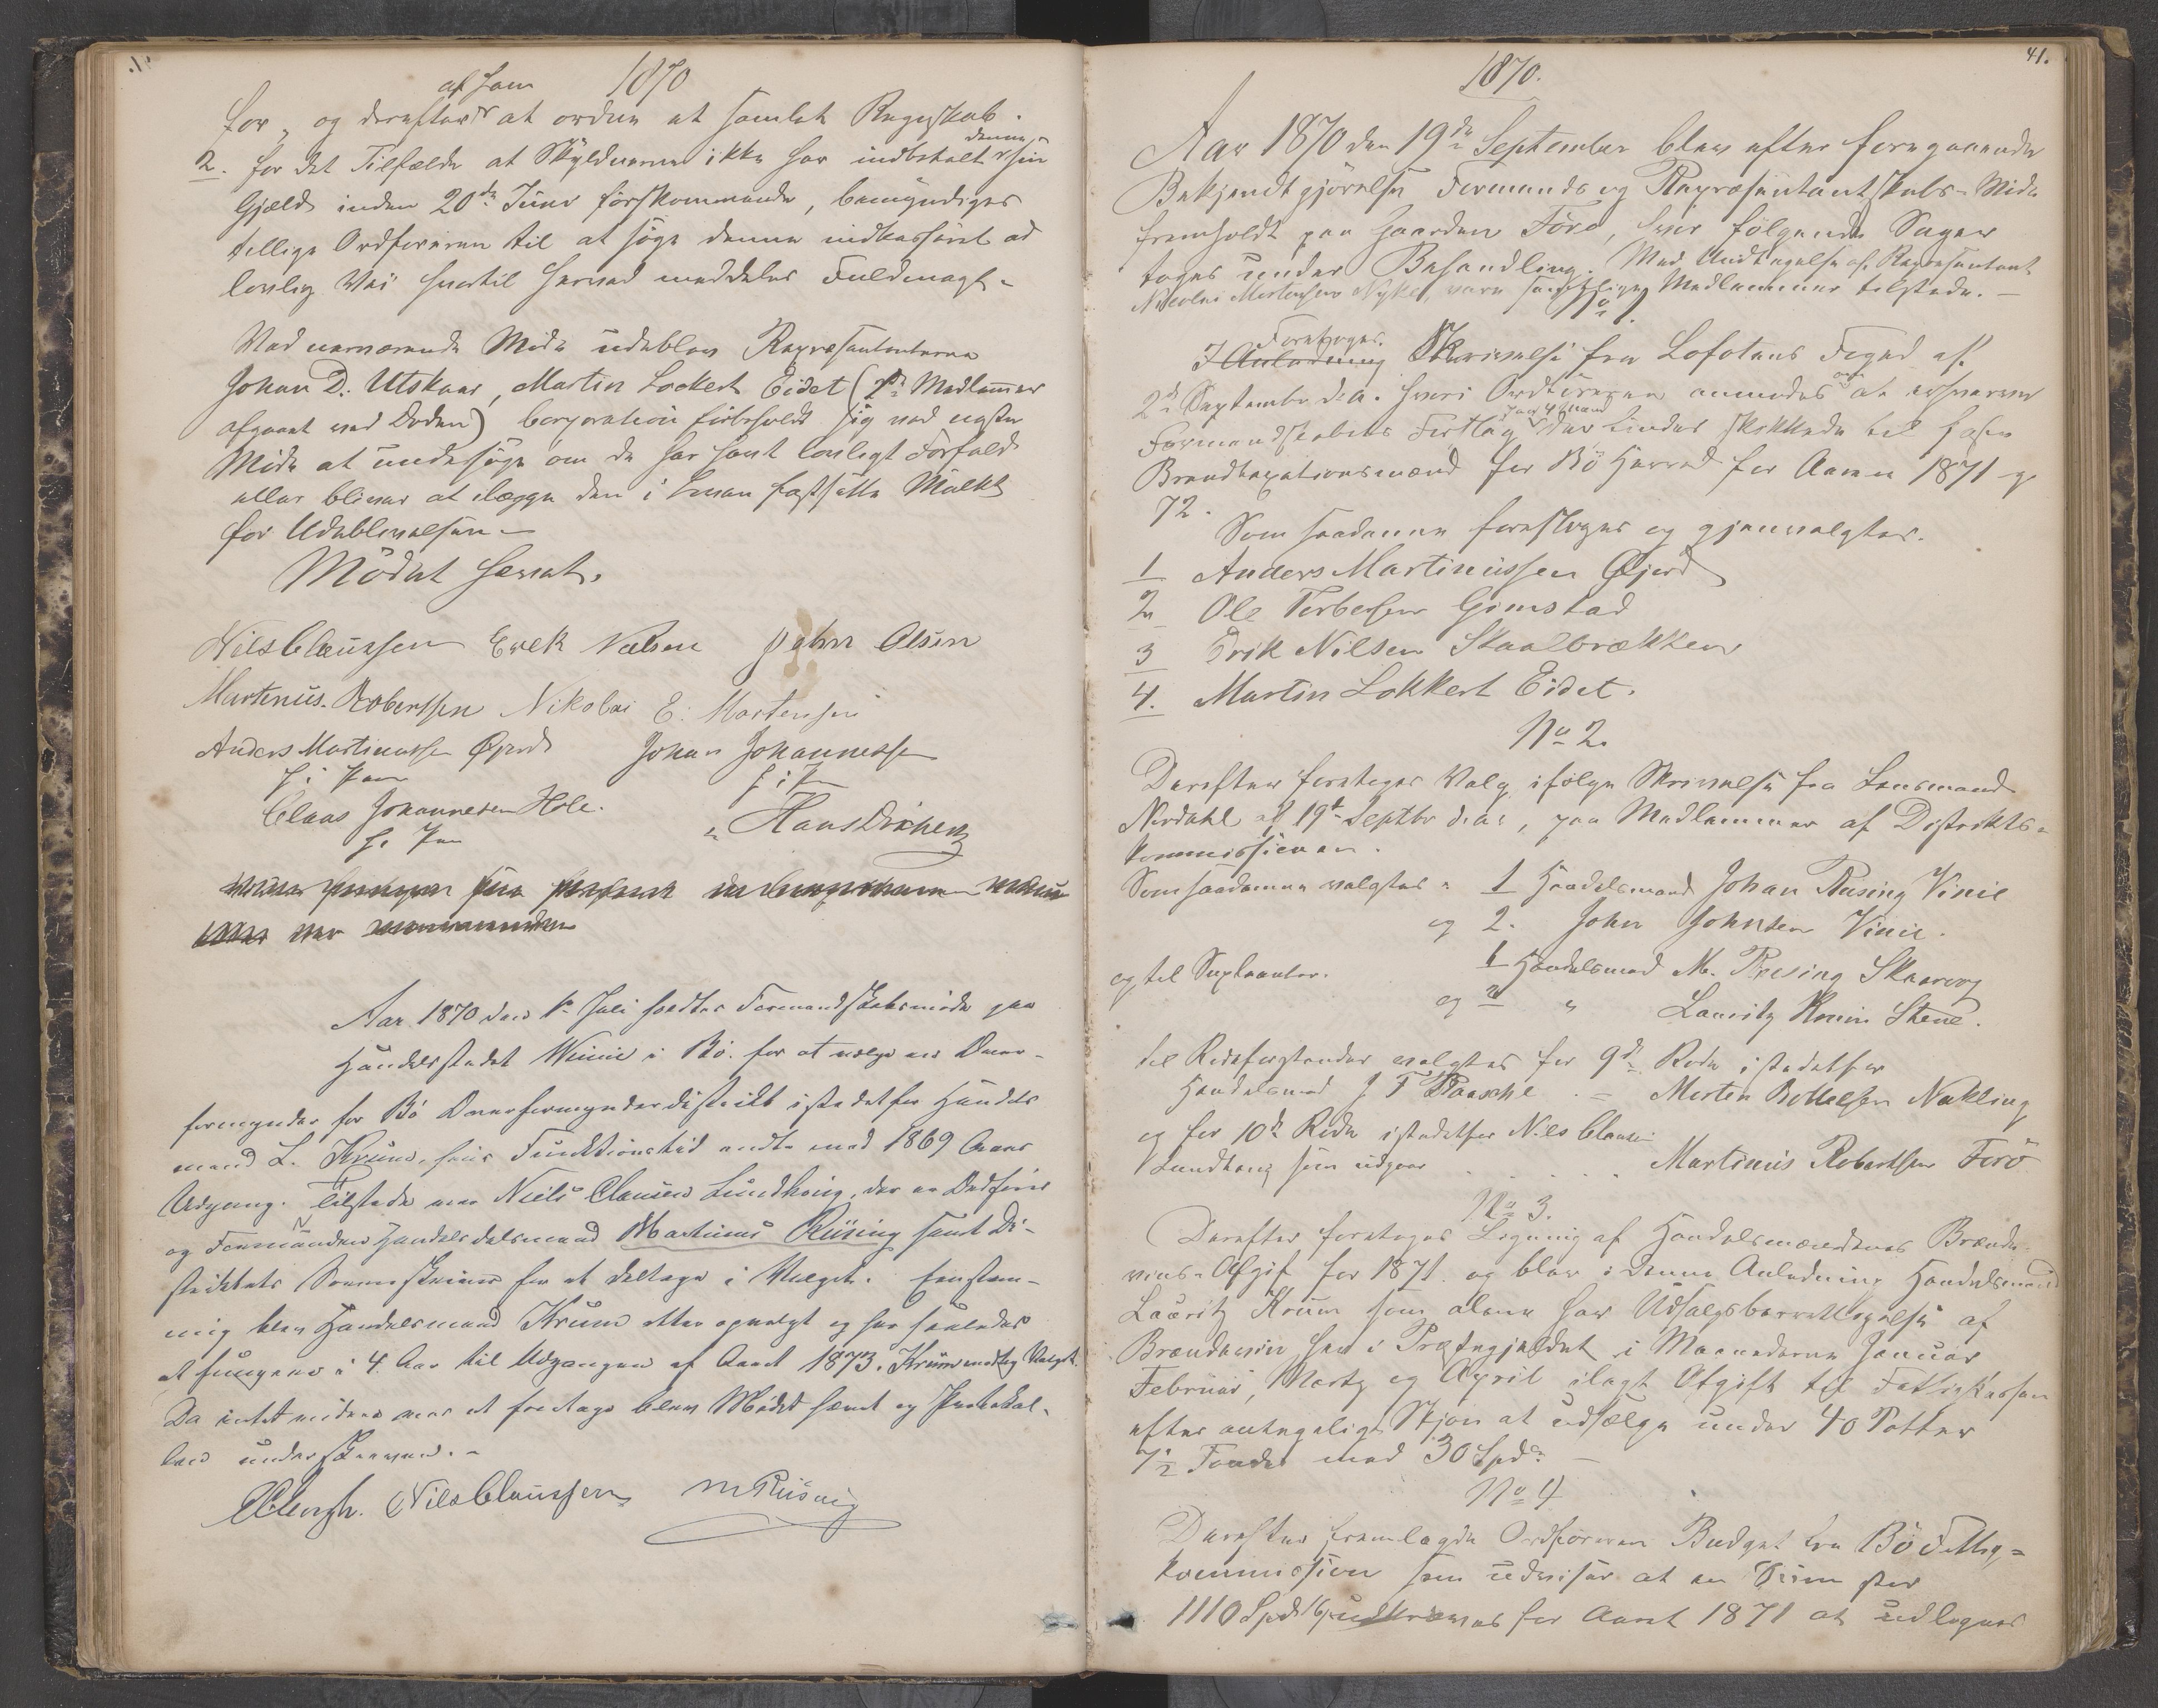 1870
af ham
for, og derefter at ordne et samlet Regnskab.
denne
2. for det Tilfælde at Skyldnerne ikke har indbetalt sin
Gjæld inden 20de Juni förstkommende, bemyndiges
tillige Ordföreren til at söge denne indkasseret ad
lovlig Vei hvortil herved meddeles Fuldmagt.
Ved nærværende Möde udeblev Repræsentanterne
Johan D. Utskaar, Martin Lockert Eidet (2de Medlemmer
afgaaet ved Döden) Corporationen forbeholdt sig ved næste
Möde at undersöge om de har havt lovligt Forfald
eller bliver at ilægge den i Loven fastsatte Mulkt
for Udeblivelsen.
Mödet hævet.
Nils Claussen Erik Nielsen John Olsen
Martinus Robertsen Nikolai E. Mortensen
Anders Martinussen Øjord Johan Johannessen
Claas Johannesen Hole.
Hans Dreher
Aar 1870 den 1te Juli holdtes Formandskabsmöde paa
Handelsstedet Winie i Bö for at vælge en Over-
formynder for Bö Overformynderdistrikt istedetfor Handels
mand L. Krum, hvis Funktionstid endte med 1869 Aars
Udgang. Tilstede var Niels Clausen Lundhoug, der er Ordförer
og Formanden Handelsmand Martinus Rüsing samt Di-
striktets Sorenskriver for at deltage i Valget. Eenstem-
mig blev Handelsmand Krum atter opvalgt og har saaledes
at fungere i 4 Aar til Udgangen af Aaret 1873. Krum modtog Valget.
Da intet videre var at foretage blev Mödet hævet og Protokol-
len underskreven.
Nils Claussen M Rüsing
41.
1870.
Aar 1870 den 19de September blev efter foregaaende
Bekjendtgjörelse Formands og Repræsentantskabs-Möde
fremholdt paa Gaarden Förö, hvor fölgende Sager
toges under Behandling. Med Undtagelse af Repræsentant
Nicolai Mortensen Nykel, vare samtlige Medlemmer tilstede.
No 1.
Foretoges
I Anledning Skrivelse fra Lofotens Foged af
2de September d.a. hvori Ordföreren anmodes om at erhverve
Formandskabets Forslag paa 4 Mænd der findes skikkede til
Brandtaxationsmænd for Bö Herred for Aarene 1871 og
72.
Som saadanne foresloges og gjenvalgtes.
1 Anders Martinussen Øjord
2 Ole Torbersen Gimstad
3 Erik Nilsen Skaalbrækken
4. Martin Lokkert Eidet.
No 2.
Derefter foretoges Valg ifölge Skrivelse fra Lensmand
Nordahl af 19de Septbr d.a., paa Medlemmer af Distrikts-
kommissionen.
Som saadanne valgtes 1 Handelsmand Johan Rüsing Vinie
og 2. John Johnsen Vinie.
og til Suppleanter. 1 Handelsmand M. Reesing Skaarvog
og 2 " Lauritz Krum Steene.
til Rodeforstander valgtes for 9de Rode istedetfor
Handelsmand J F Raasche Morten Rollefsen Nakling
og for 10de Rode istedetfor Nils Clausen
Lundhoug som udgaar Martinus Robertsen Forö
No 3.
Derefter foretoges Ligning af Handelsmændenes Brænde-
vins-Afgift for 1871 og blev i denne Anledning Handelsmand
Lauritz Krum som alene har Udsalgsberettigelse af
Brændeviin her i Præstegjeldet i Maanederne Januar
Februar, Marts og April ilagt Afgift til Fattigkassen
efter antageligt Skjön at udsælge under 40 Potter
7½ Fade med 30 Spd.
No 4
Derefter fremlagde Ordföreren Budget fra Bö Fattig-
kommission som udviser at en Sum stor
1110 Spd udkræves for Aaret 1871 at udlignes